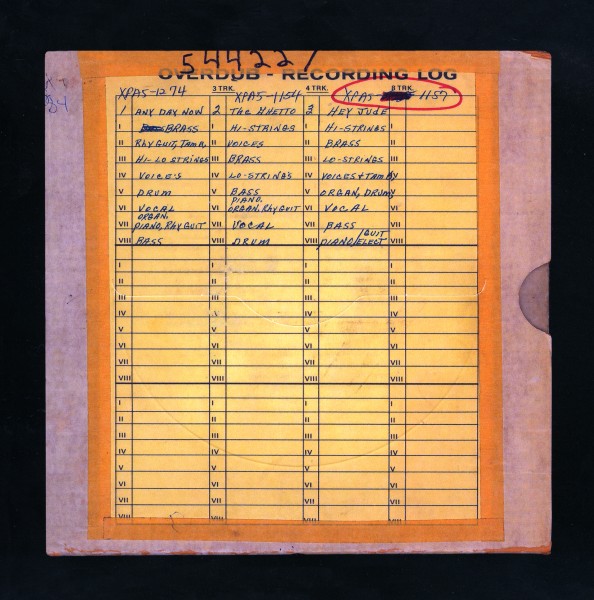 544227
OVERDUB - RECORDING LOG
3 TRK. 4 TRK. 8 TRK.
XPA5-1274 XPA5-1154 XPA5- 1157
1 ANY DAY NOW 2 THE GHETTO 3 HEY JUDE
I BRASS I HI-STRINGS I HI-STRINGS I
II RHY GUIT, TAMB. II VOICES II BRASS II
III HI-LO STRINGS III BRASS III LO-STRINGS III
IV VOICES IV LO-STRINGS IV VOICES+TAMB IV
V DRUM V BASS V ORGAN, DRUM V
VI VOCAL VI PIANO. ORGAN, RHY GUIT VI VOCAL VI
VII ORGAN. PIANO, RHY GUIT VII VOCAL VII BASS VII
VIII BASS VIII DRUM VIII PIANO/ELECT GUIT VIII
I I I I
II II II II
III III III III
IV IV IV IV
V V V V
VI VI VI VI
VII VII VII VII
VIII VIII VIII VIII
I I I I
II II II II
III III III III
IV IV IV IV
V V V V
VI VI VI VI
VII VII VII VII
VIII VIII VIII VIII